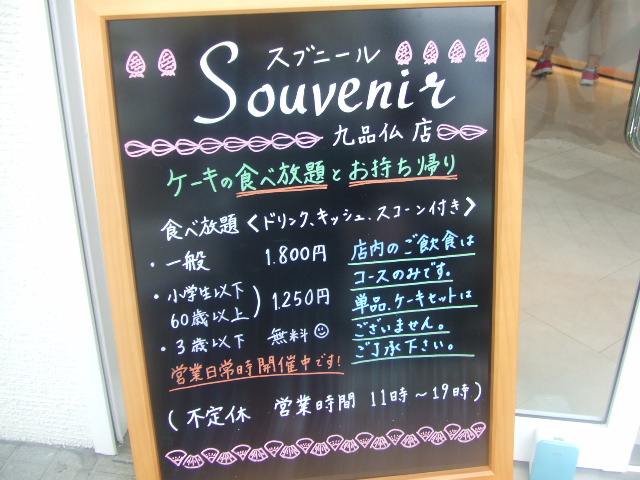 スブニール
Souvenir
九品仏店
ケーキの食べ放題とお持ち帰り
食べ放題<ドリンク、キッシュ、スコーン付き>
・一般 1.800円
・小学生以下
60歳以上 ) 1.250円
・3歳以下 無料
営業日常時開催中です!
店内のご飲食は
コースのみです。
単品、ケーキセットは
ございません。
ご了承下さい。
(不定休 営業時間 11時~19時)